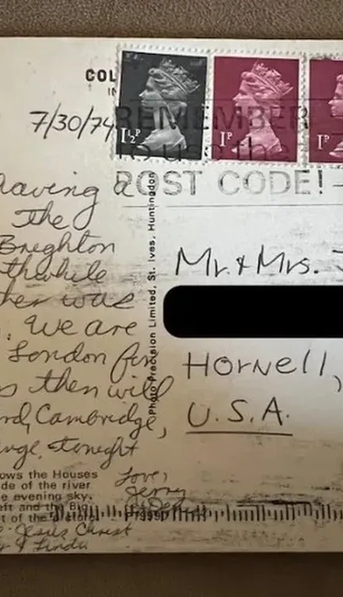 COL
IN
7/30/74
1½P
1P
1P
REMEMBER
to use the
POST CODE!
having a
The
Brighton
thwhile
her was
. We are
London for
s then will
rd, Cambridge,
nge. tonight
Love,
Jerry
ows the Houses
de of the river
e evening sky.
eft and the Big
t of the picture.
"Jesus Christ
& Linda
Photo Precision Limited, St. Ives, Huntingdon
Mr. & Mrs. J
Hornell,
U.S.A.